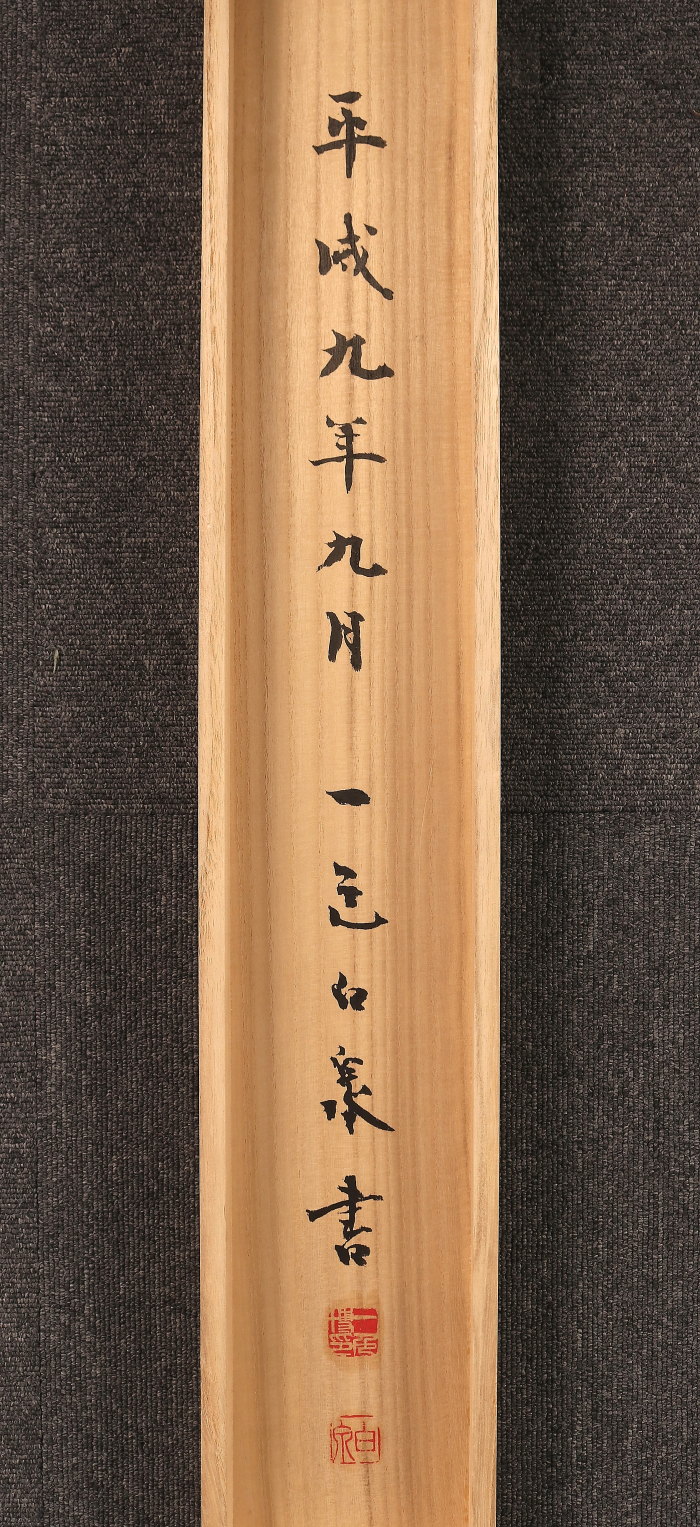 平成九年九月 一色白泉書
一色
白泉